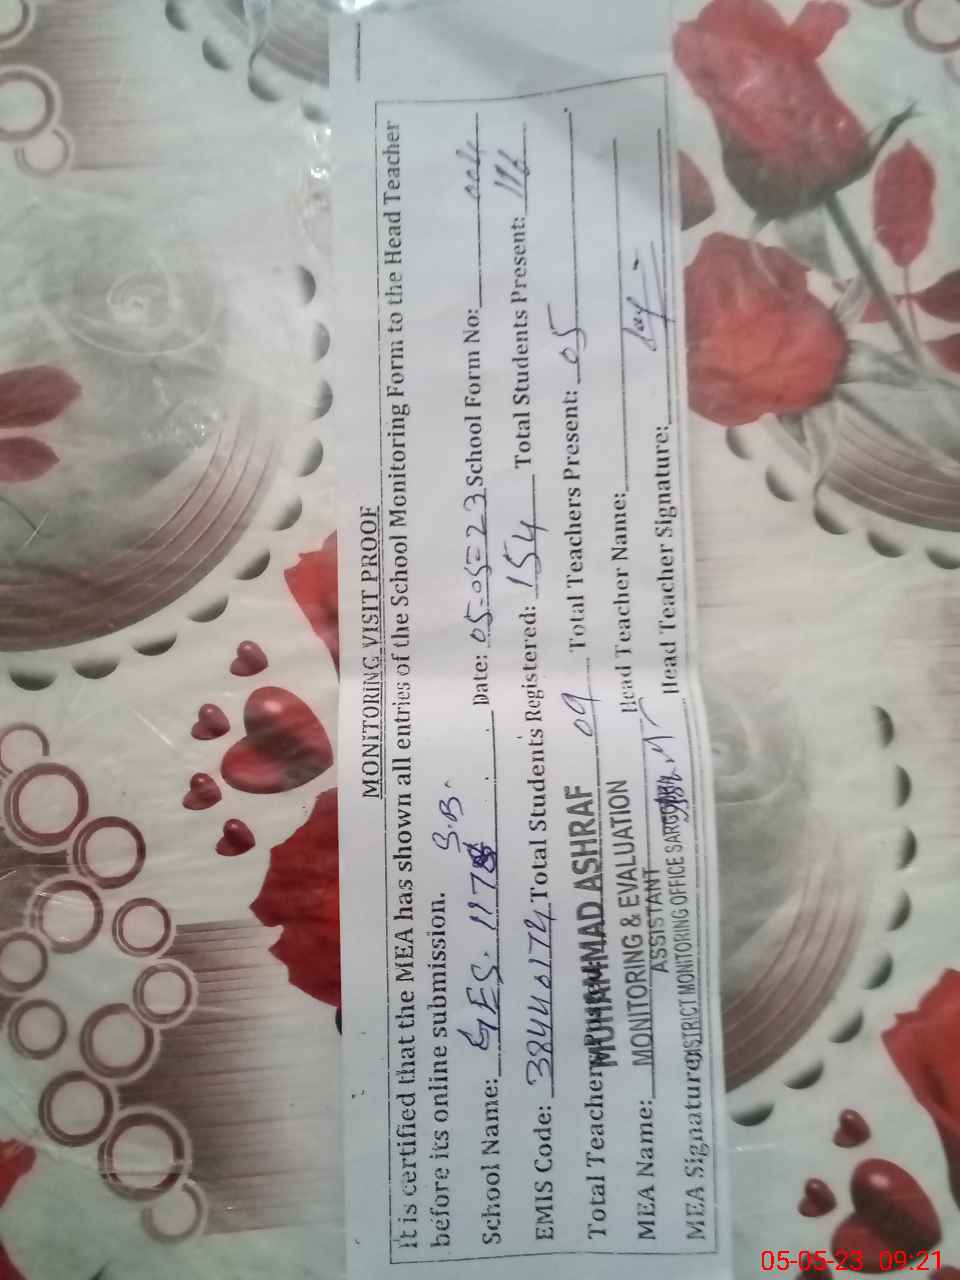 MONITORING VISIT PROOF
It is certified that the MEA has shown all entries of the School Monitoring Form to the Head Teacher
before its online submission.
School Name: GES. 117 S.B. Date: 05-05-23 School Form No: 004
EMIS Code: 38440174 Total Students Registered: 154 Total Students Present: 116
Total Teachers 09 Total Teachers Present: 05
MUHAMMAD ASHRAF
MEA Name: Head Teacher Name:
MONITORING & EVALUATION
ASSISTANT
MEA Signature: Head Teacher Signature:
DISTRICT MONITORING OFFICE SARGODHA
05-05-23 09:21